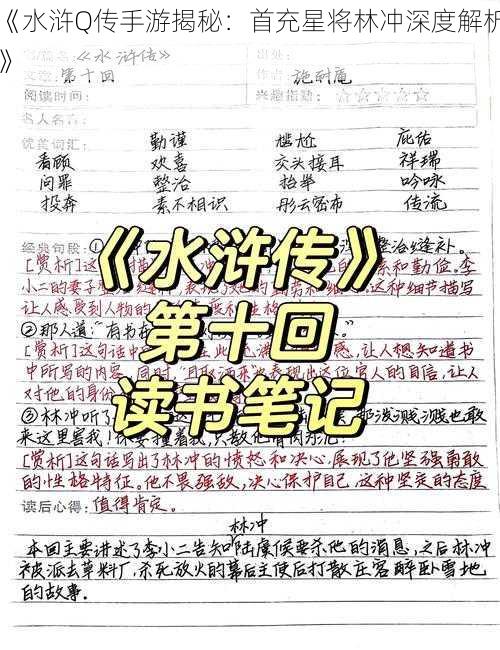 《水浒Q传手游揭秘：首充星将林冲深度解析
》
书/篇名：《水浒传》 出处：
文章：第十回 作者：施耐庵
阅读时间： 兴趣指勤：☆☆☆☆☆
名人名言：
优美词汇： 勤谨 尴尬 庇佑
看顾 欢喜 交头接耳 祥瑞
问罪 整治 抬举 吟咏
投奔 素不相识 彤云密布 传流
《水浒传》
第十回
读书笔记
经典句段：① 整治缝补。
[赏析]这 描 素和勤俭。李
小二的妻子 这种细节描写
让人感受到人物的
②那人道：“有书在
[赏析]这句话中 感，让人想知道书
中所写的内容，同时， 表现出这位官人的自信，让人
对他的身份
③林冲听了 那泼贼，贼也敢
来这里害我！休要撞着我，只教他骨肉为泥！
[赏析]这句话写出了林冲的愤怒和决心，展现了他坚强勇敢
的性格特征。他不畏强敌，决心保护自己，这种坚定的态度
读后心得：值得肯定。
林冲
本回主要讲述了李小二告知陆虞候要杀他的消息，之后林冲
被派去草料厂，杀死放火的幕后主使后打散庄客醉卧雪地
的故事。